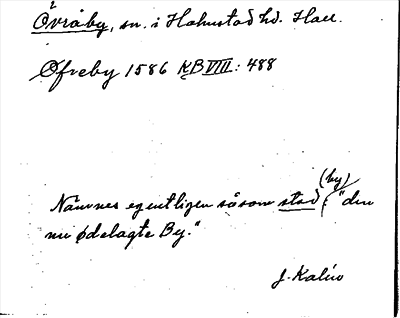 Övråby, sn. i Halmstad hd. Hall.
Øfreby 1586 KB VIII: 488
Nämnes egentligen såsom stad (by); "den
nu ødelagte By."
J. Kalén